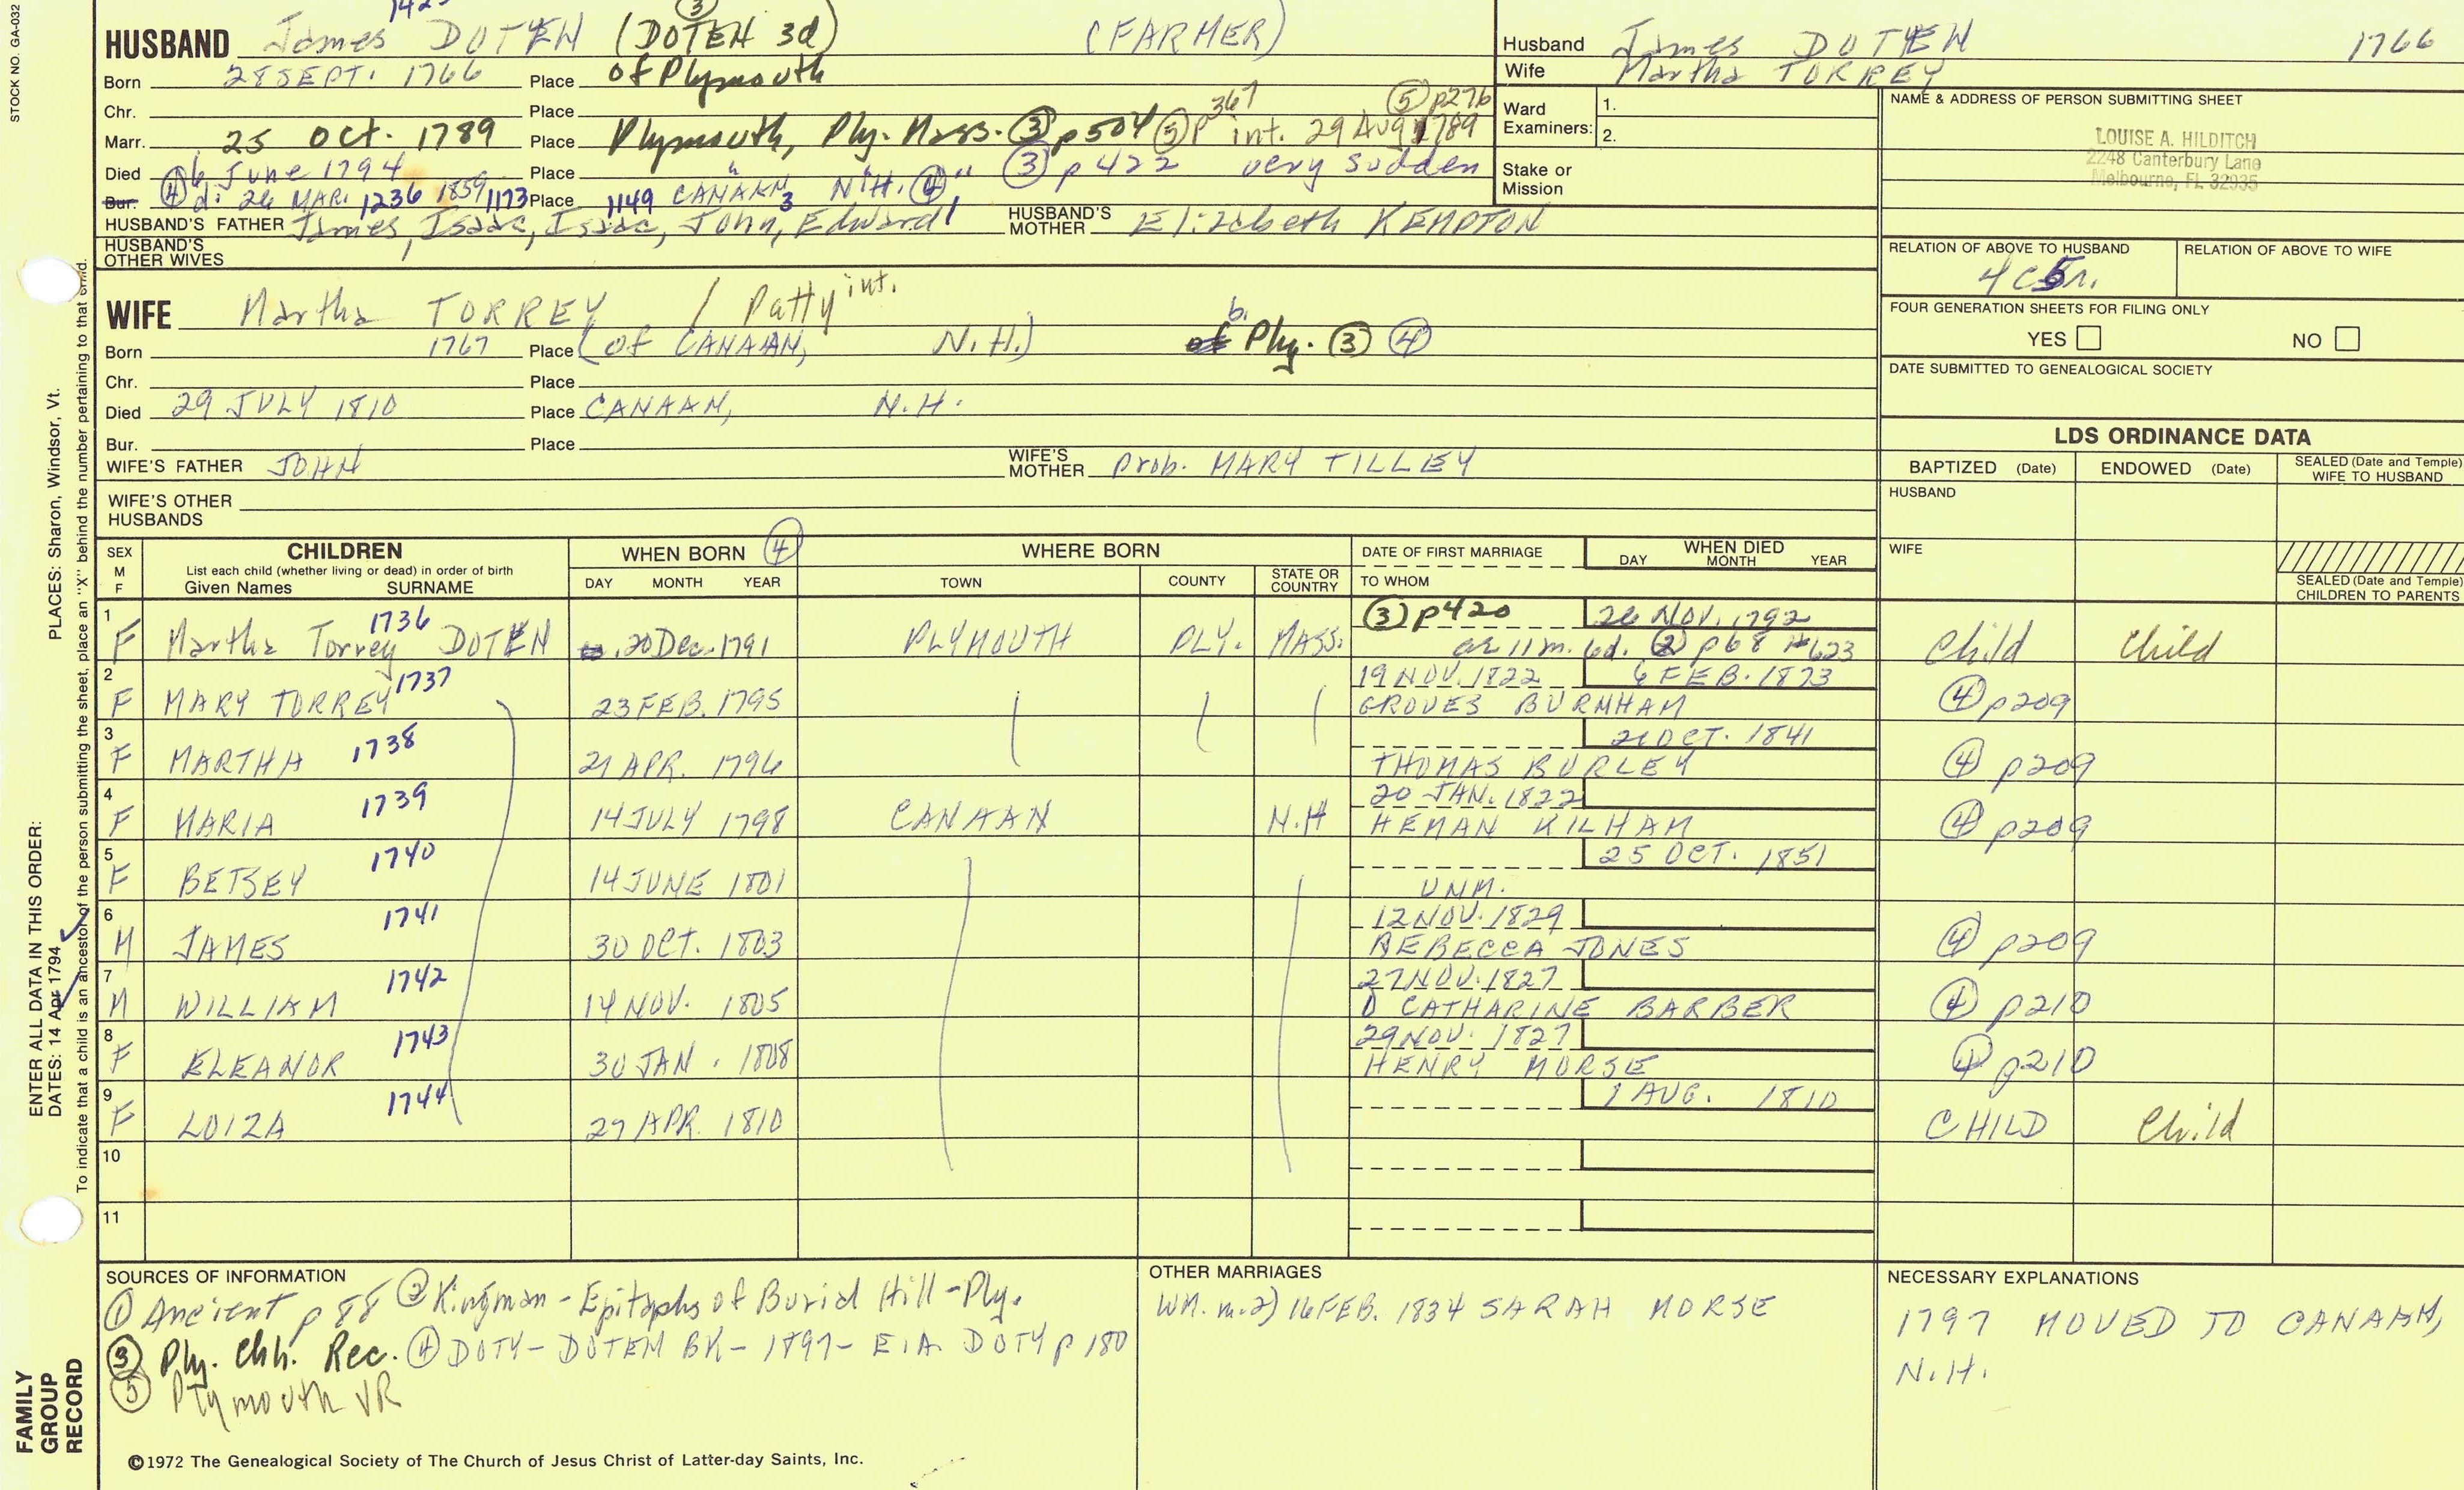 STOCK NO. GA-032
HUSBAND James DOTEN (DOTEN 3d) ③ (FARMER)
Born 28 SEPT. 1766 Place of Plymouth
Chr. Place
Marr. 25 Oct. 1789 Place Plymouth, Ply. Mass. ③ p504 ⑤ p367 int. 29 Aug 1789 ⑤ p276
Died 6 June 1794 Place " " " ③ p422 very sudden
Bur. ④ d: 26 MAR. 1236 1859 1173 Place 1149 CANAAN 3 N.H. ④
HUSBAND'S FATHER James, Isaac, Isaac, John, Edward HUSBAND'S MOTHER Elizabeth KEMPTON
HUSBAND'S OTHER WIVES
WIFE Martha TORREY / Patty int.
Born 1767 Place (of CANAAN, N.H.) b. of Ply. ③ ④
Chr. Place
Died 29 JULY 1810 Place CANAAN, N.H.
Bur. Place
WIFE'S FATHER JOHN WIFE'S MOTHER prob. MARY TILLEY
WIFE'S OTHER HUSBANDS
Husband James DOTEN 1766
Wife Martha TORREY
Ward Examiners: 1. 2.
Stake or Mission
NAME & ADDRESS OF PERSON SUBMITTING SHEET
LOUISE A. HILDITCH
2248 Canterbury Lane
Melbourne, FL 32935
RELATION OF ABOVE TO HUSBAND RELATION OF ABOVE TO WIFE
4 C 5 r.
FOUR GENERATION SHEETS FOR FILING ONLY
YES NO
DATE SUBMITTED TO GENEALOGICAL SOCIETY
LDS ORDINANCE DATA
BAPTIZED (Date) ENDOWED (Date) SEALED (Date and Temple) WIFE TO HUSBAND
HUSBAND
WIFE
SEALED (Date and Temple) CHILDREN TO PARENTS
SEX M F CHILDREN WHEN BORN ④ WHERE BORN DATE OF FIRST MARRIAGE WHEN DIED
List each child (whether living or dead) in order of birth
Given Names SURNAME DAY MONTH YEAR TOWN COUNTY STATE OR COUNTRY TO WHOM DAY MONTH YEAR
1 1736 ③ p420 26 NOV. 1792
F Martha Torrey DOTEN 20 Dec. 1791 PLYMOUTH PLY. MASS. ae 11 m. 6d. ② p68 #623 Child Child
2 1737 19 NOV. 1822 6 FEB. 1873
F MARY TORREY 23 FEB. 1795 GROVES BURNHAM ④ p209
3 1738 21 OCT. 1841
F MARTHA 21 APR. 1796 THOMAS BURLEY ④ p209
4 1739 20 JAN. 1822
F MARIA 14 JULY 1798 CANAAN N.H HEMAN KILHAM ④ p209
5 1740 25 OCT. 1851
F BETSEY 14 JUNE 1801 UNM.
6 1741 12 NOV. 1829
M JAMES 30 OCT. 1803 REBECCA JONES ④ p209
7 1742 27 NOV. 1827
M WILLIAM 14 NOV. 1805 CATHARINE BARBER ④ p210
8 1743 29 NOV. 1827
F ELEANOR 30 JAN. 1808 HENRY MORSE ④ p210
9 1744 1 AUG. 1810
F LOIZA 27 APR. 1810 CHILD Child
10
11
SOURCES OF INFORMATION
① Ancient p 88 ② Kingman - Epitaphs of Burial Hill - Ply.
③ Ply. Chh. Rec. ④ DOTY - DOTEN BK - 1897 - E.A. DOTY p 180
⑤ Plymouth VR
OTHER MARRIAGES
WM. m. 2) 16 FEB. 1834 SARAH MORSE
NECESSARY EXPLANATIONS
1797 MOVED TO CANAAN,
N.H.
©1972 The Genealogical Society of The Church of Jesus Christ of Latter-day Saints, Inc.
FAMILY GROUP RECORD
ENTER ALL DATA IN THIS ORDER:
DATES: 14 Apr 1794
PLACES: Sharon, Windsor, Vt.
To indicate that a child is an ancestor of the person submitting the sheet, place an "X" behind the number pertaining to that child.